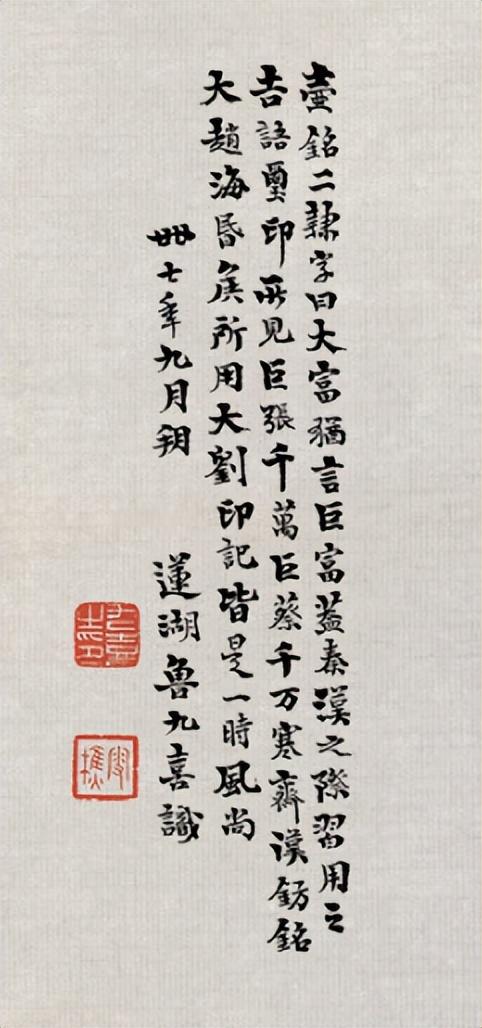 壷銘二隸字曰大富猶言巨富蓋秦漢之際習用之
吉語璽印所見巨張千萬巨蔡千万寒齋漢鈁銘
大趙海昏矦所用大劉印記皆是一時風尚
卌七年九月朔 蓮湖魯九喜識